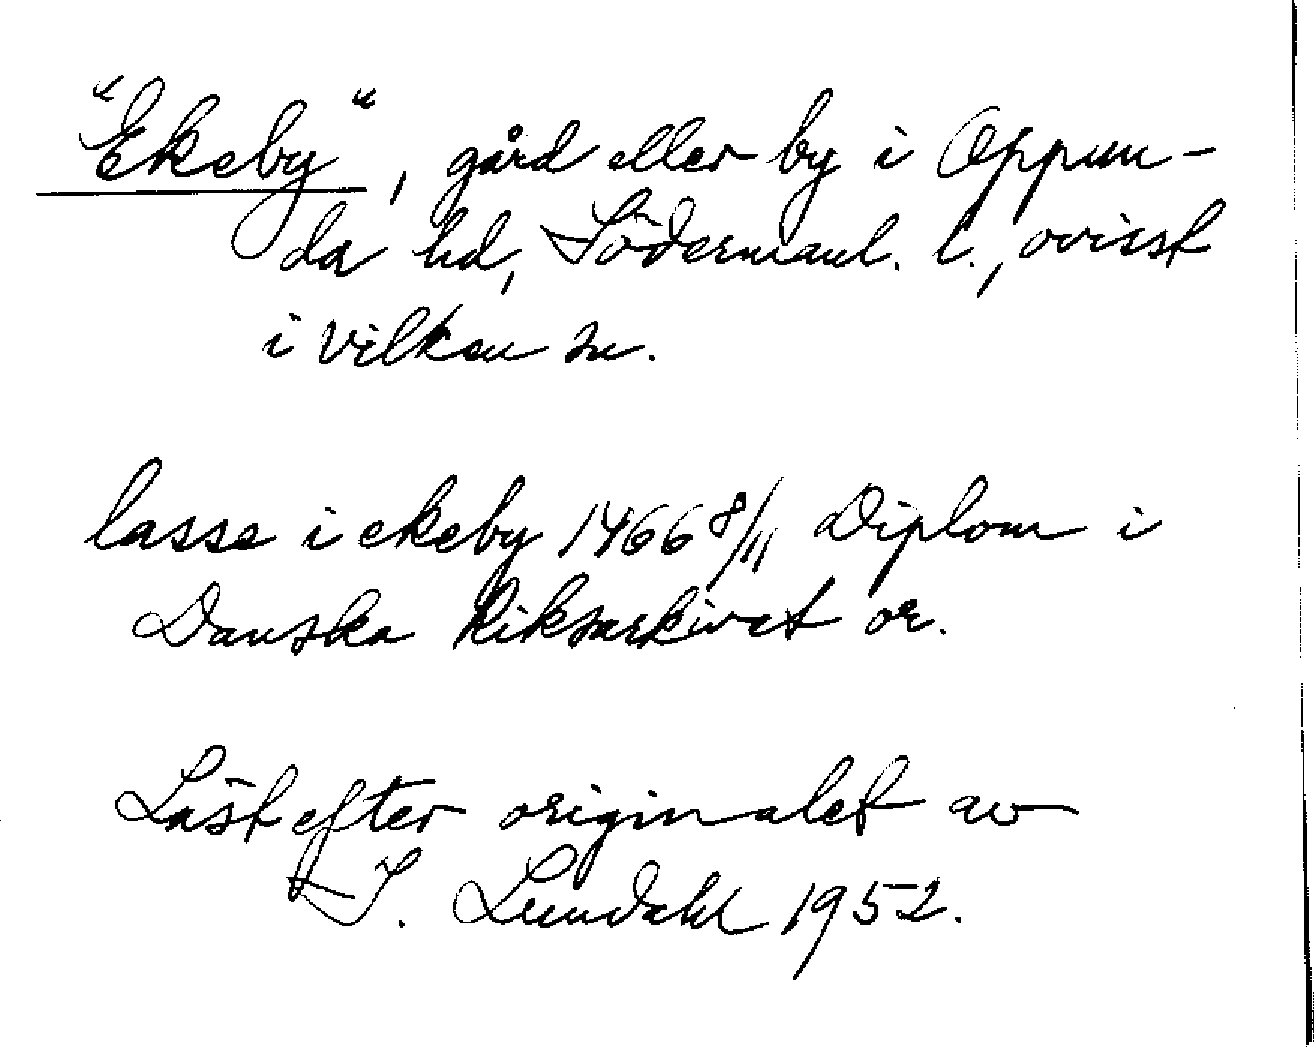 "Ekeby", gård eller by i Oppun-
da hd, Södermanl. l., ovisst
i vilken sn.
lasse i ekeby 1466 8/11 Diplom i
Danska Riksarkivet or.
Läst efter originalet av
I. Lundahl 1952.